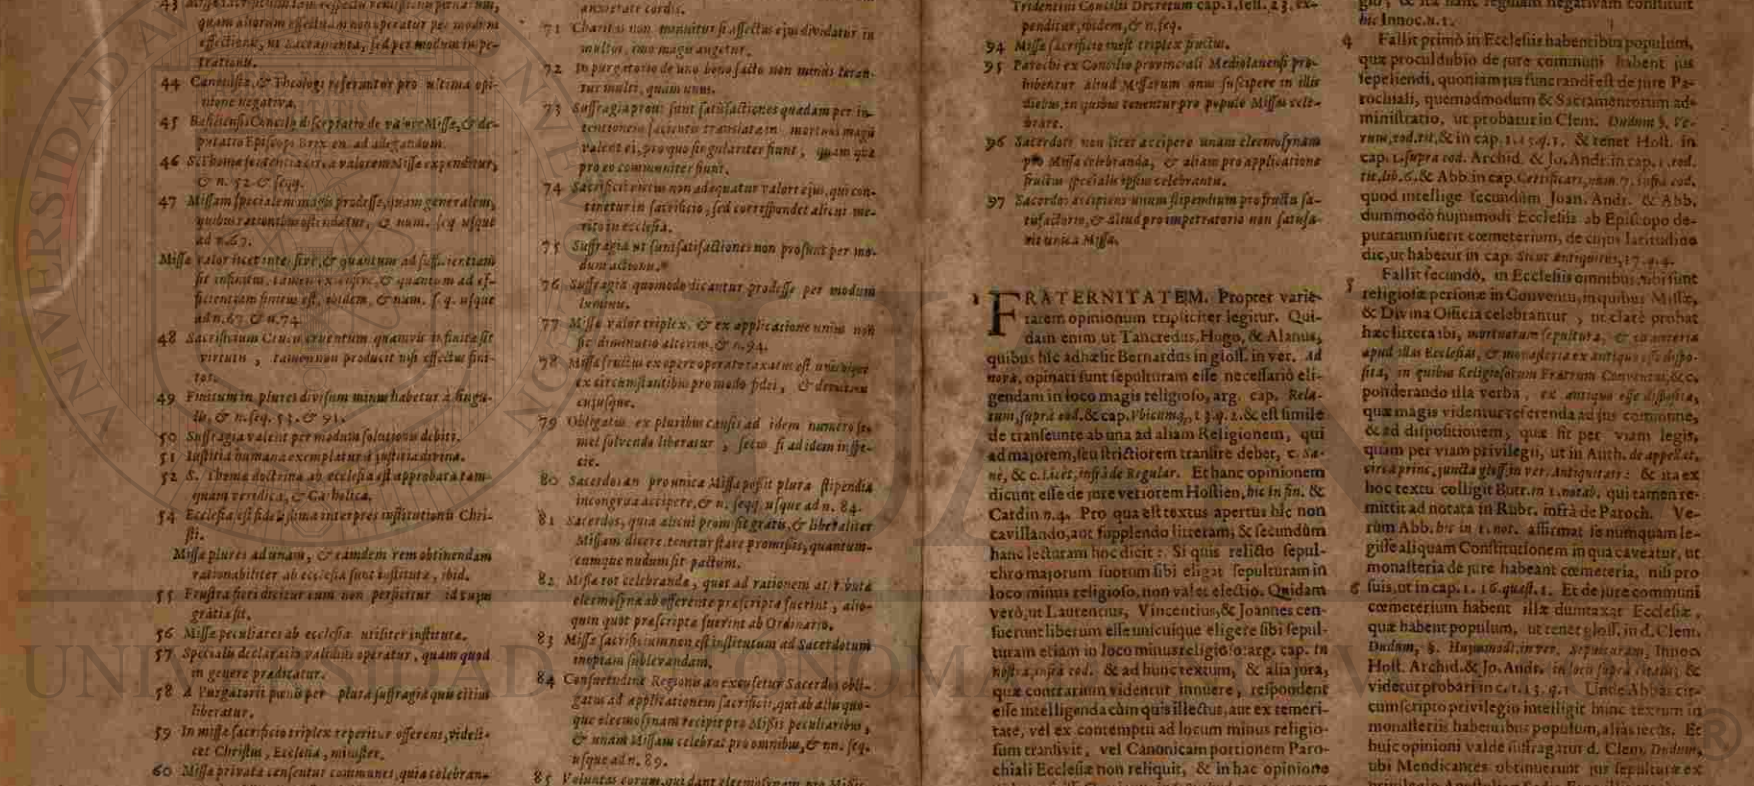 quam aliorum effectuum non operatur per modum
effectionis, ut Sacramenta, sed per modum impe-
trationis.
44 Canonistæ, & Theologi referantur pro ultima opi-
nione negativa.
45 Basiliensis Concilij disceptatio de valore Missæ, & de-
putatio Episcopi
46 S. Thomæ sententia circa valorem Missæ expenditur,
& n. 52. & seqq.
47 Missam specialem magis prodesse, quam generalem,
quibus rationibus ostendatur, & num. seq. usque
ad n. 67.
Missæ valor licet intensivè, & quantum ad sufficientiam
sit infinitus, tamen extensivè, & quantum ad ef-
ficientiam finitus est, ibidem, & num. seq. usque
ad n. 67. & n. 74.
48 Sacrificium Crucis cruentum quamvis infinitæ sit
virtutis, tamen non producit nisi effectus fini-
tos.
49 Finitum in plures divisum minus habetur à singu-
lis, & n. seq. 53. & 91.
50 Suffragia valent per modum solutionis debiti.
51 Iustitia humana exemplatur à justitia divina.
52 S. Thomæ doctrina ab ecclesia est approbata tam-
quam veridica, & Catholica.
54 Ecclesia est fidelissima interpres institutionis Chri-
sti.
Missæ plures ad unam, & eamdem rem obtinendam
rationabiliter ab ecclesia sunt institutæ, ibid.
55 Frustra fieri dicitur cum non perficitur id cujus
gratia fit.
56 Missæ peculiares ab ecclesia utiliter institutæ.
57 Specialis declaratio validius operatur, quam quod
in genere prædicatur.
58 A Purgatorii pœnis per plura suffragia quis citius
liberatur.
59 In missæ sacrificio triplex reperitur offerens, videli-
cet Christus, Ecclesia, minister.
60 Missæ privatæ censentur communes, quia celebran-
anxietate cordis.
71 Charitas non minuitur si affectus ejus dividatur in
multos, imo magis augetur.
72 In purgatorio de uno bono facto non minus lætan-
tur multi, quam unus.
73 Suffragia prout sunt satisfactiones quædam per in-
tentionem facientis translatæ in mortuos magis
valent ei, pro quo singulariter fiunt, quam quæ
pro eo communiter fiunt.
74 Sacrificii virtus non adequatur valori ejus, qui con-
tinetur in sacrificio, sed correspondet alicui me-
rito in ecclesia.
75 Suffragia ut sunt satisfactiones non prosunt per mo-
dum actionis.
76 Suffragia quomodo dicantur prodesse per modum
luminis.
77 Missæ valor triplex, & ex applicatione unius non
fit diminutio alterius, & n. 94.
78 Missæ fructus ex opere operato taxatus est unicuique
ex circumstantibus pro modo fidei, & devotionis
cujusque.
79 Obligatus ex pluribus causis ad idem numero se-
mel solvendo liberatur, secus si ad idem in spe-
cie.
80 Sacerdos an pro unica Missa possit plura stipendia
incongrua accipere, & n. seqq. usque ad n. 84.
81 Sacerdos, quia alicui promisit gratis, & liberaliter
Missam dicere, tenetur stare promissis, quantum-
cumque nudum sit pactum.
82 Missæ tot celebrandæ, quot ad rationem attributæ
eleemosynæ ab offerente præscripta fuerint, alio-
quin quot præscripta fuerint ab Ordinario.
83 Missæ sacrificium non est institutum ad Sacerdotum
inopiam sublevandam.
84 Consuetudine Regionis an excusetur Sacerdos obli-
gatus ad applicationem sacrificii, qui ab aliis quo-
que eleemosynam recipit pro Missis peculiaribus,
& unam Missam celebrat pro omnibus, & nn. seq.
usque ad n. 89.
85 Voluntas eorum, qui dant eleemosynam pro Missis
Tridentini Concilii Decretum cap. 1. sess. 23. ex-
penditur, ibidem, & n. seq.
94 Missæ sacrificio inest triplex fructus.
95 Parochi ex Concilio provinciali Mediolanensi pro-
hibentur aliud Missarum onus suscipere in illis
diebus, in quibus tenentur pro populo Missas cele-
brare.
96 Sacerdoti non licet accipere unam eleemosynam
pro Missa celebranda, & aliam pro applicatione
fructus specialis ipsius celebrantis.
97 Sacerdos accipiens unum stipendium pro fructu sa-
tisfactorio, & aliud pro impetratorio non satisfa-
cit unica Missa.
1 FRATERNITATEM. Propter varie-
tatem opinionum tripliciter legitur. Qui-
dam enim ut Tancredus, Hugo, & Alanus,
quibus hîc adhæsit Bernardus in gloss. in ver. ad
nova, opinati sunt sepulturam esse necessariò eli-
gendam in loco magis religioso, arg. cap. Rela-
tum, suprà eod. & cap. Vbicumq., 13. q. 2. & est simile
de transeunte ab una ad aliam Religionem, qui
ad majorem, seu strictiorem transire debet, c. Sa-
nè, & c. Licet, infrà de Regular. Et hanc opinionem
dicunt esse de jure veriorem Hostien, hic in fin. &
Cardin. n. 4. Pro qua est textus apertus hîc non
cavillando, aut supplendo litteram; & secundùm
hanc lecturam hoc dicit: Si quis relicto sepul-
chro majorum suorum sibi eligat sepulturam in
loco minus religioso, non valet electio. Quidam
verò, ut Laurentius, Vincentius, & Joannes cen-
suerunt liberum esse unicuique eligere sibi sepul-
turam etiam in loco minus religioso: arg. cap. In
nostra, infrà eod. & ad hunc textum, & alia jura,
quæ contrarium videntur innuere, respondent
esse intelligenda cùm quis illectus, aut ex temeri-
tate, vel ex contemptu ad locum minus religio-
sum transivit, vel Canonicam portionem Paro-
chiali Ecclesiæ non reliquit, & in hac opinione
hic Innoc. n. 1.
4 Fallit primò in Ecclesiis habentibus populum,
quæ proculdubio de jure communi habent jus
sepeliendi, quoniam jus funerandi est de jure Pa-
rochiali, quemadmodum & Sacramentorum ad-
ministratio, ut probatur in Clem. Dudum §. Ve-
rum, eod. tit. & in cap. 1. 13. q. 1. & tenet Host. in
cap. 1. suprà eod. Archid. & Jo. Andr. in cap. 1. eod.
tit. lib. 6. & Abb. in cap. Certificari, num. 7. suprà eod.
quod intellige secundùm Joan. Andr. & Abb.
dummodò hujusmodi Ecclesiis ab Episcopo de-
putatum fuerit cœmeterium, de cujus latitudine
dic, ut habetur in cap. Sicut antiquitus, 17. q. 4.
5 Fallit secundò, in Ecclesiis omnibus, ubi sunt
religiosæ personæ in Conventu, in quibus Missæ,
& Divina Officia celebrantur, ut clarè probat
hæc littera ibi, mortuorum sepultura, & cœmeteria
apud illas Ecclesias, & monasteria ex antiquo esse dispo-
sita, in quibus Religiosorum Fratrum Conventus, &c.
ponderando illa verba, ex antiquo esse disposita,
quæ magis videntur referenda ad jus commune,
& ad dispositionem, quæ fit per viam legis,
quàm per viam privilegii, ut in Auth. de appellat.
circa princ. juncta gloss. in ver. Antiquitate: & ita ex
hoc textu colligit Butr. in 1. notab. qui tamen re-
mittit ad notata in Rubr. infrà de Paroch. Ve-
rùm Abb. hic in 1. not. affirmat se numquam le-
gisse aliquam Constitutionem in qua caveatur, ut
monasteria de jure habeant cœmeteria, nisi pro
6 suis, ut in cap. 1. 16. quæst. 1. Et de jure communi
cœmeterium habent illæ dumtaxat Ecclesiæ,
quæ habent populum, ut tenet gloss. in d. Clem.
Dudum, §. Hujusmodi, in ver. Sepulturam, Innoc.
Host. Archid. & Jo. Andr. in locis suprà citatis, &
videtur probari in c. 1. 13. q. 1. Unde Abbas cir-
cumscripto privilegio intelligit hunc textum in
monasteriis habentibus populum, aliàs secùs. Et
huic opinioni valde suffragatur d. Clem. Dudum,
ubi Mendicantes obtinuerunt jus sepulturæ ex